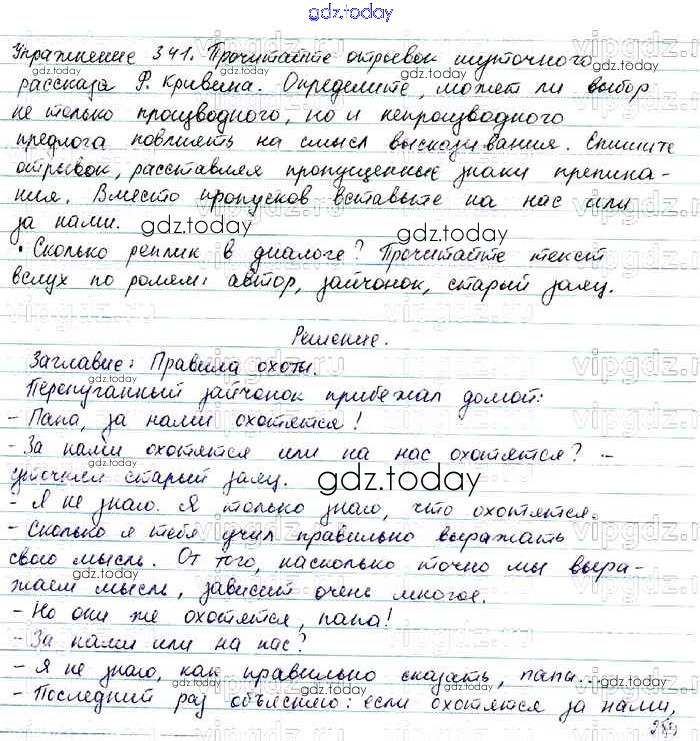 gdz.today
Упражнение 341. Прочитайте отрывок шуточного
рассказа Ф. Кривина. Определите, может ли выбор
не только производного, но и непроизводного
предлога повлиять на смысл высказывания. Спишите
отрывок, расставляя пропущенные знаки препина-
ния. Вместо пропусков вставьте на нас или
за нами.
• Сколько реплик в диалоге? Прочитайте текст
вслух по ролям: автор, зайчонок, старый заяц.
Решение.
Заглавие: Правила охоты.
Перепуганный зайчонок прибежал домой:
- Папа, за нами охотятся!
- За нами охотятся или на нас охотятся? -
уточнил старый заяц.
- Я не знаю. Я только знаю, что охотятся.
- Сколько я тебя учил правильно выражать
свою мысль. От того, насколько точно мы выра-
жаем мысль, зависит очень многое.
- Но они же охотятся, папа!
- За нами или на нас?
- Я не знаю, как правильно сказать, папа...
- Последний раз объясняю: если охотятся за нами,